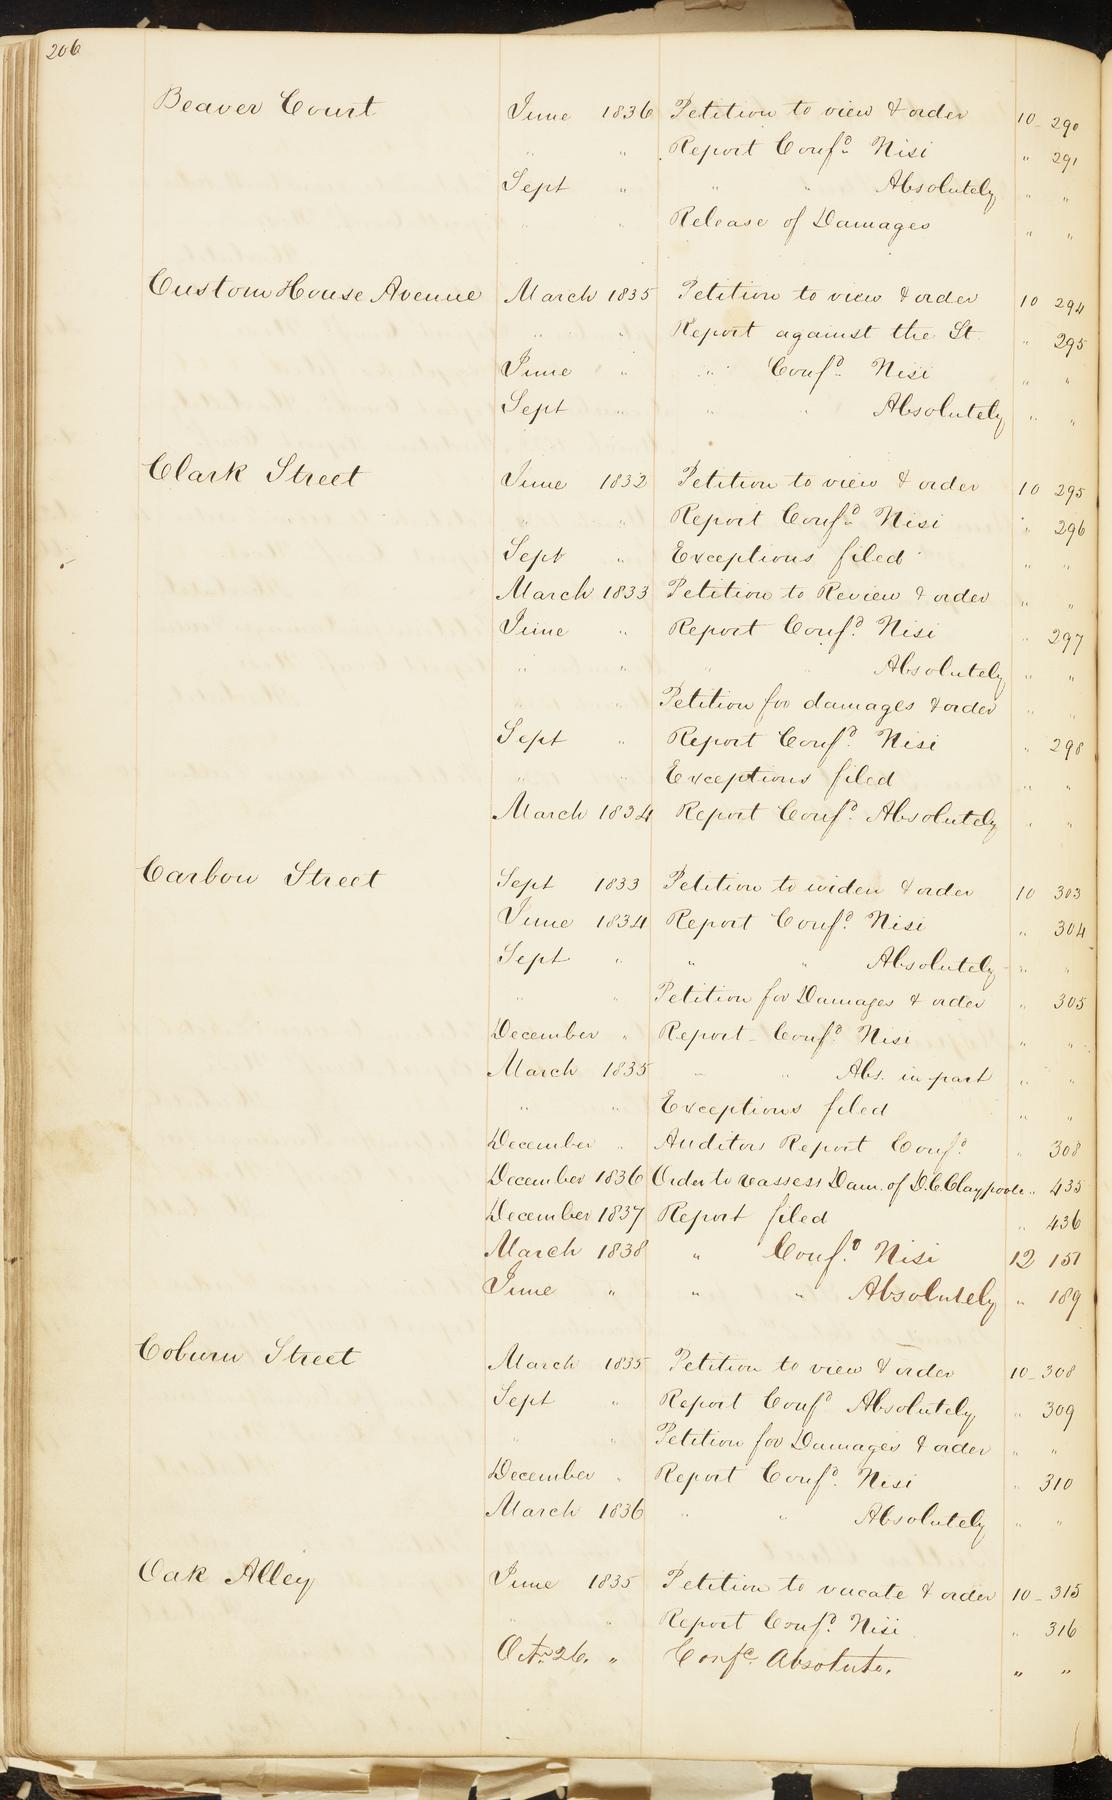 206
Beaver Court June 1836 Petition to view & order 10 290
" " Report Confd. Nisi " 291
Sept " " " Absolutely " "
" " Release of Damages " "
Custom House Avenue March 1835 Petition to view & order 10 294
" " Report against the St. " 295
June " " Confd. Nisi " "
Sept " " " Absolutely " "
Clark Street June 1832 Petition to view & order 10 295
" " Report Confd. Nisi " 296
Sept " Exceptions filed " "
March 1833 Petition to Review & order " "
June " Report Confd. Nisi " 297
" " " Absolutely " "
Petition for damages & order " "
Sept " Report Confd. Nisi " 298
" " Exceptions filed " "
March 1834 Report Confd. Absolutely " "
Carbon Street Sept 1833 Petition to widen & order 10 303
June 1834 Report Confd. Nisi " 304
Sept " " " Absolutely " "
" " Petition for Damages & order " 305
December " Report Confd. Nisi " "
March 1835 " " Abs. in part " "
" " Exceptions filed " "
December " Auditors Report Confd. " 308
December 1836 Order to reassess Dam. of D.C. Claypoole " 435
December 1837 Report filed " 436
March 1838 " Confd. Nisi 12 151
June " " " Absolutely " 189
Coburn Street March 1835 Petition to view & order 10 308
Sept " Report Confd Absolutely " 309
" " Petition for Damages & order " "
December " Report Confd. Nisi " 310
March 1836 " " Absolutely " "
Oak Alley June 1835 Petition to vacate & order 10 315
" " Report Confd. Nisi " 316
Octr. 26. " Confd. Absolute. " "